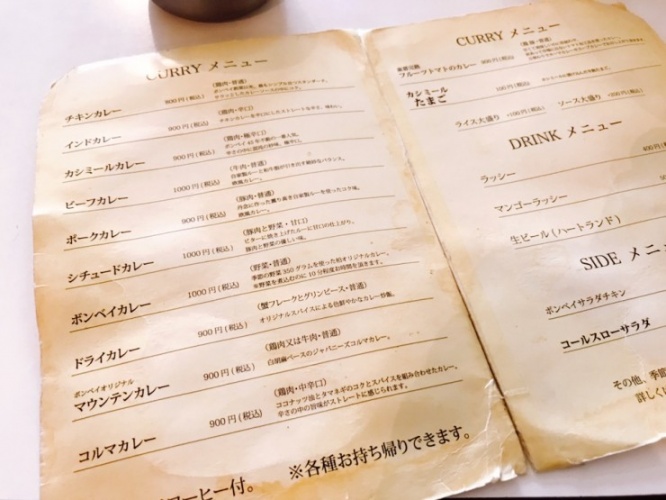 CURRY メニュー
チキンカレー 900円(税込) (鶏肉・普通)
インドカレー 900円(税込) (鶏肉・辛口)
カシミールカレー 900円(税込) (鶏肉・極辛口)
ビーフカレー 1000円(税込) (牛肉・普通)
欧風カレー。
ポークカレー 900円(税込) (豚肉・普通)
欧風カレー。
シチュードカレー 1000円(税込) (豚肉と野菜・甘口)
豚肉と野菜の優しい味。
ボンベイカレー 1000円(税込) (野菜・普通)
季節の野菜350グラムを使った柏オリジナルカレー。
※野菜を煮込むのに10分程度お時間を頂きます。
ドライカレー 900円(税込) (蟹フレークとグリンピース・普通)
オリジナルスパイスによる色鮮やかなカレー炒飯。
ボンベイオリジナル
マウンテンカレー 900円(税込) (鶏肉又は牛肉・普通)
白胡麻ベースのジャパニーズコルマカレー。
コルマカレー 900円(税込) (鶏肉・中辛口)
ココナッツ法とタマネギのコクとスパイスを組み合わせたカレー。
辛さの中の旨味がストレートに感じられます。
コーヒー付。 ※各種お持ち帰りできます。
CURRY メニュー
フルーツトマトのカレー
カシミール
たまご 100円(税込)
ライス大盛り ソース大盛り
DRINK メニュー
ラッシー
マンゴーラッシー
生ビール(ハートランド)
SIDE メニュ
ボンベイサラダチキン
コールスローサラダ
その他、季節
詳しくし